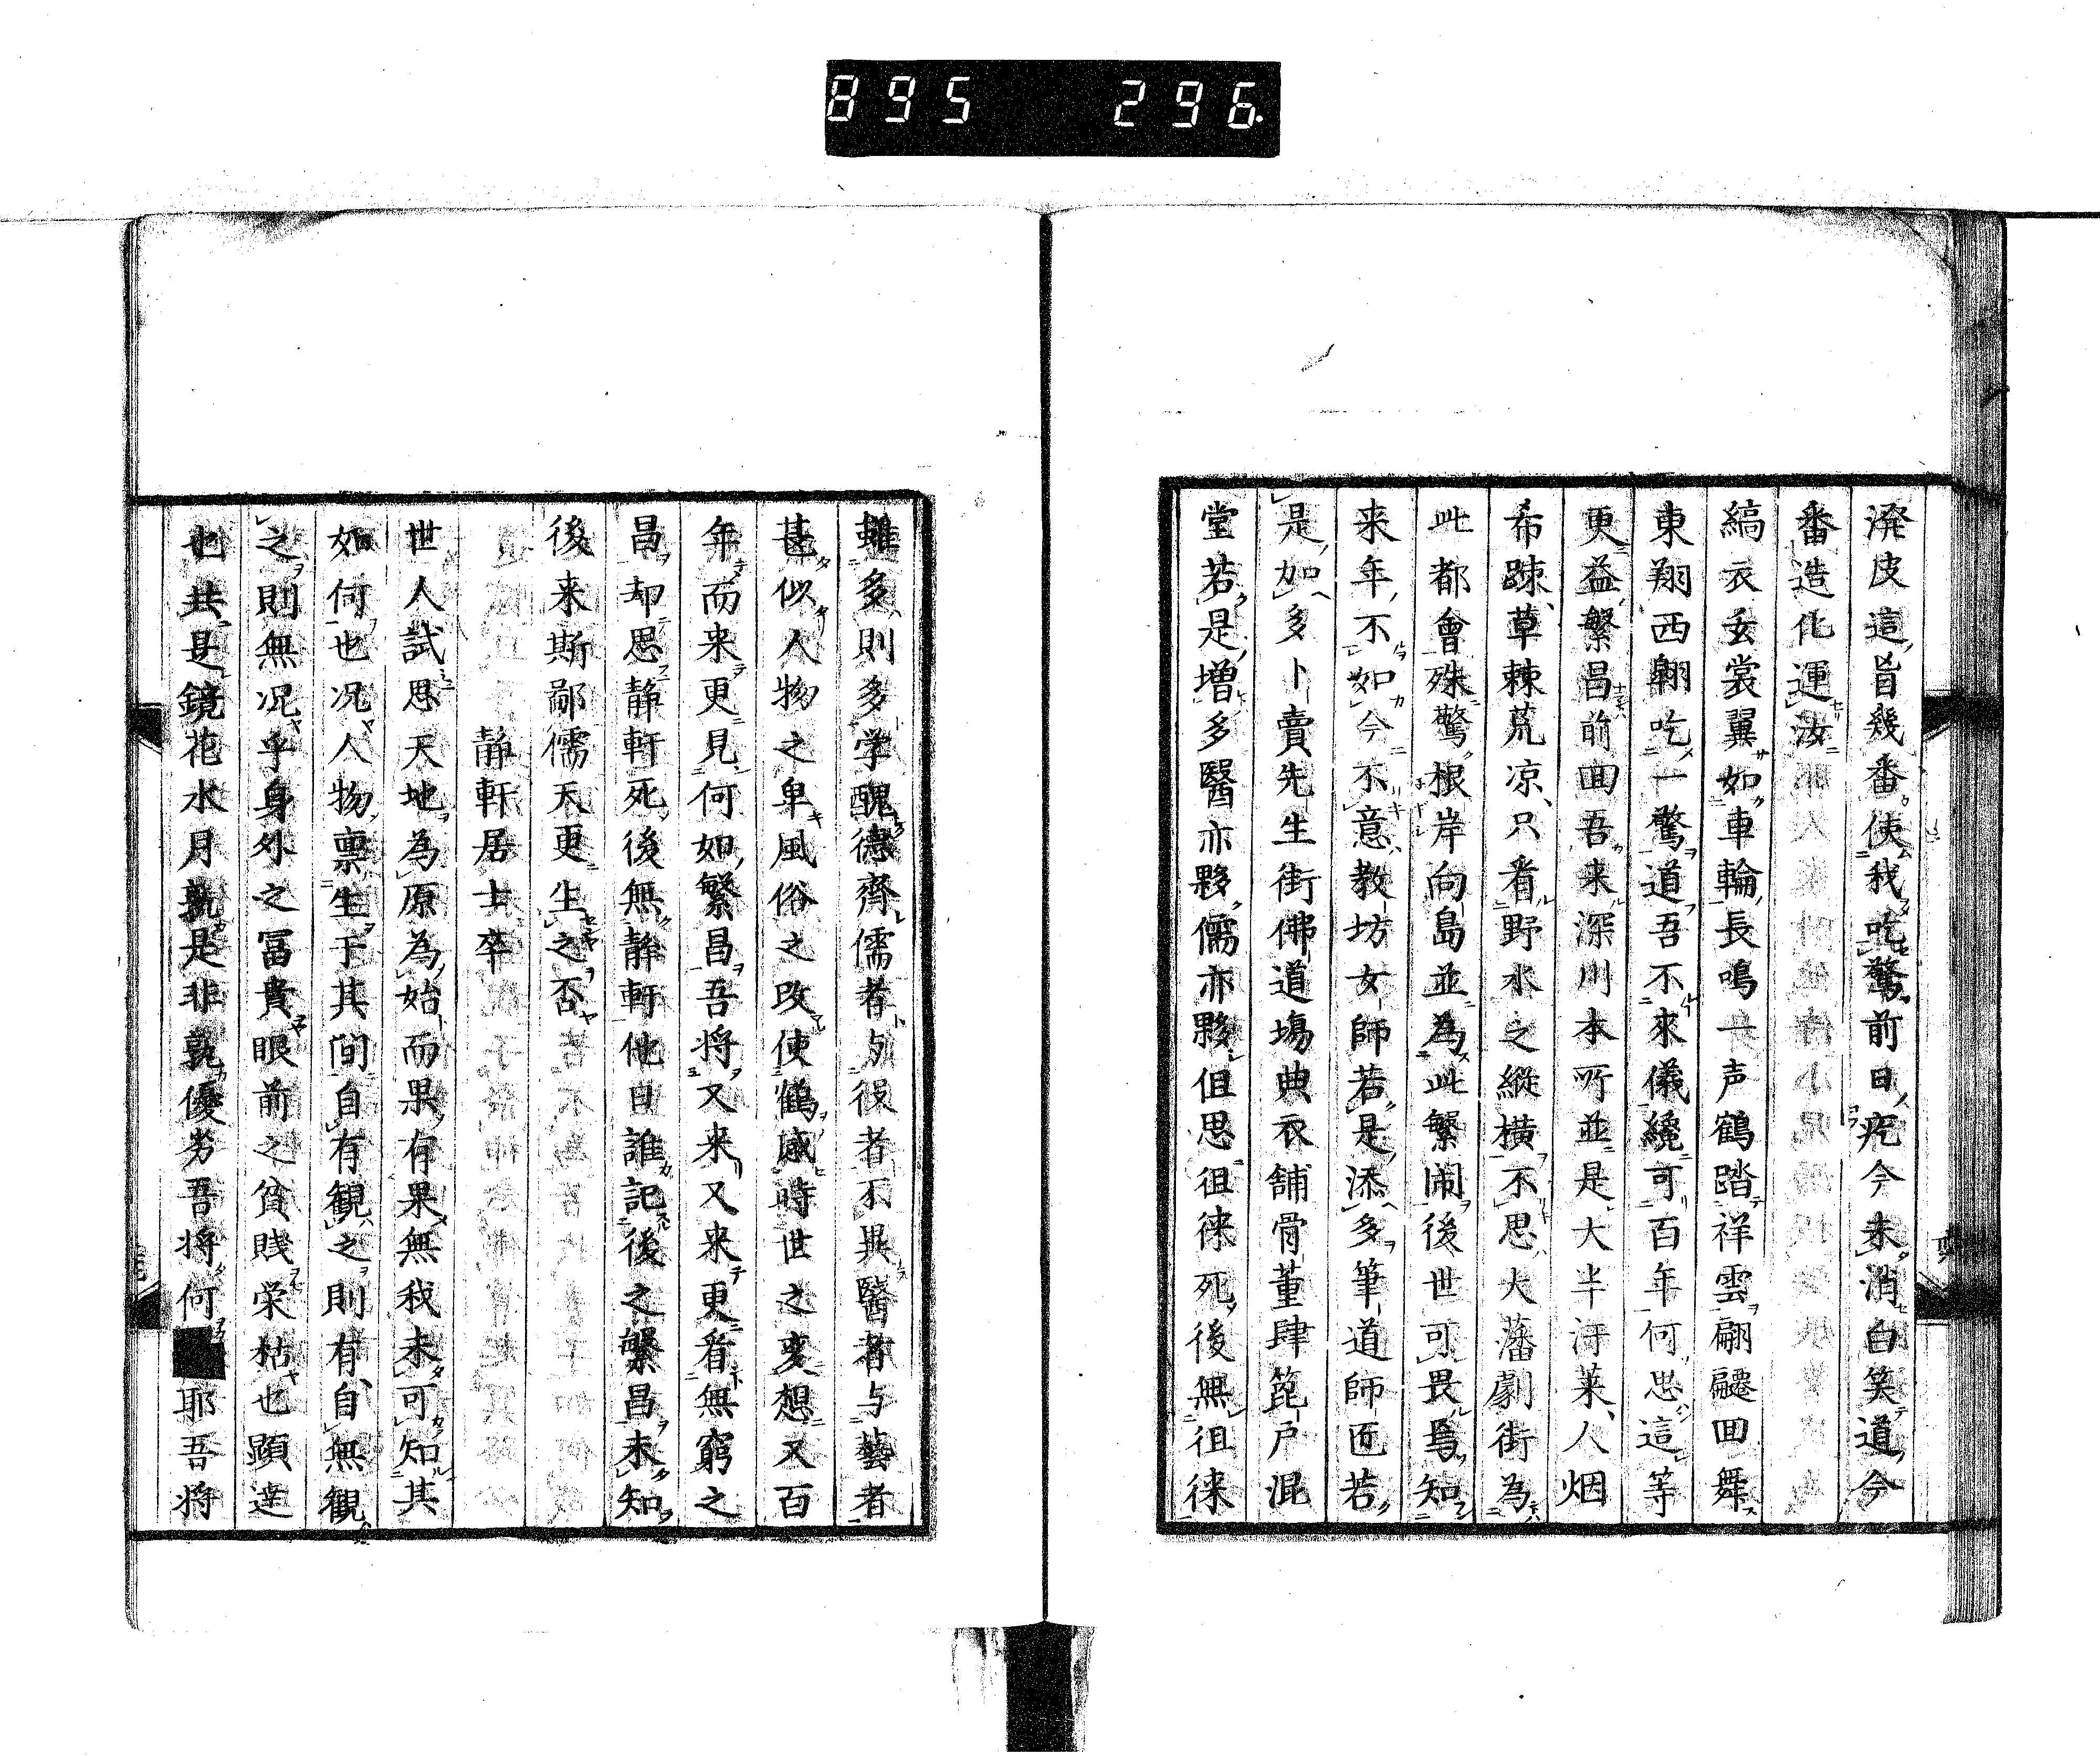 895 296
溌皮這㫖幾番使我吃驚前日疕今未消白笑道今
番造化運汝
縞衣玄裳翼如車輪長鳴一声鶴踏祥雲翩䙴回舞
東翔西翺吃一驚道吾不來儀纔可百年何思這等
更益繁昌前回吾来深川本所並是大半汙萊人烟
希踈草棘荒凉只看野水之縱横不思大藩劇街為
此都會殊驚根岸向島並為此繁閙後世可畏焉知
来年不如今不意教坊女師若是添多筆道師匠若
是加多卜賣先生街佛道塲典衣舗骨董肆箆戶混
堂若是増多醫亦夥儒亦夥但思徂徠死後無徂徠
雖多則多学醜德齊儒者与役者不異醫者与藝者
甚似人物之卑風俗之改使鶴感時世之变想又百
年而来更見何如繁昌吾将又来又来更看無窮之
昌却思静軒死後無静軒他日誰記後之繁昌未知
後来斯鄙儒天更生之否
静軒居士卒
世人試思天地為原為始而果有果無我未可知其
如何也况人物禀生于其間自有観之則有自無観
之則無况乎身外之冨貴眼前之貧賎栄枯也顕達
也共是鏡花水月孰是非孰優劣吾将何耶吾将